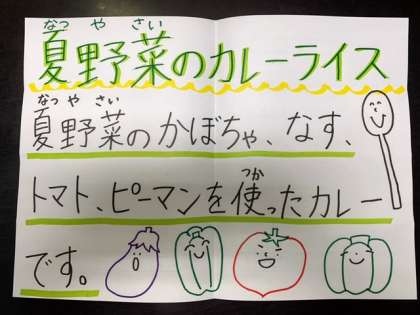 なつ や さい
夏野菜のカレーライス
なつ や さい
夏野菜のかぼちゃ、なす、
つか
トマト、ピーマンを使ったカレー
です。